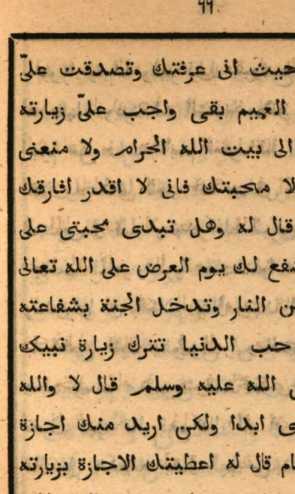 ٦٦
حيث انى عرفتك وتصدقت علىّ
العميم بقى واجب علىّ زيارته
الى بيت الله الحرام ولا منعنى
لا محبتك فانى لا اقدر افارقك
قال له وهل تبدى محبتى على
لك يوم العرض على الله تعالى
النار وتدخل الجنة بشفاعته
حب الدنيا تترك زيارة نبيك
الله عليه وسلم قال لا والله
ابدا ولكن اريد منك اجازة
قال له اعطيتك الاجازة بزيارته